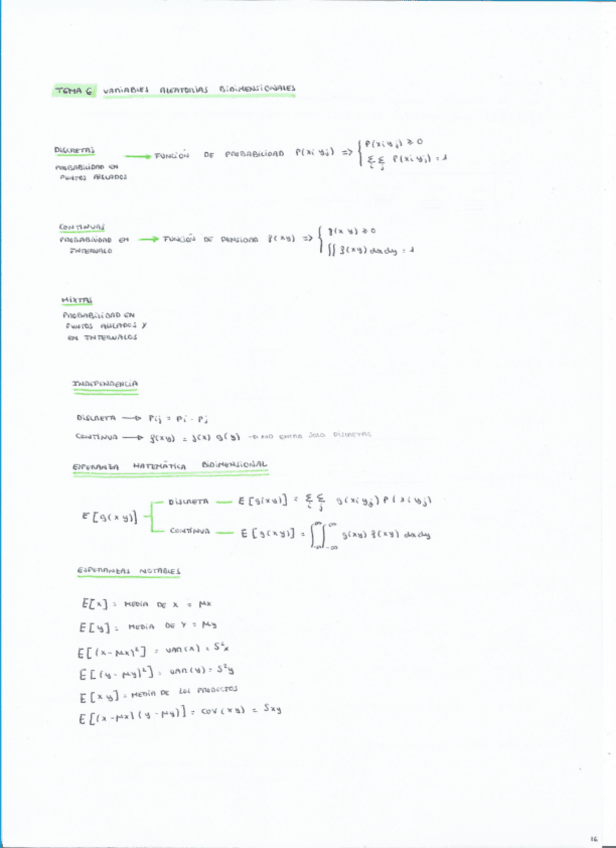 TEMA 6 VARIABLES ALEATORIAS BIDIMENSIONALES
DISCRETAS → FUNCIÓN DE PROBABILIDAD P(xi yj) => { P(xi yj) ≥ 0
Σi Σj P(xi yj) = 1
PROBABILIDAD EN
PUNTOS AISLADOS
CONTINUAS
PROBABILIDAD EN → FUNCIÓN DE DENSIDAD f(xy) => { f(xy) ≥ 0
INTERVALO
∬ f(xy) dx dy = 1
MIXTAS
PROBABILIDAD EN
PUNTOS AISLADOS Y
EN INTERVALOS
INDEPENDENCIA
DISCRETA → Pij = Pi · Pj
CONTINUA → f(xy) = f(x) g(y) → NO ENTRA SOLO DISCRETAS
ESPERANZA MATEMÁTICA BIDIMENSIONAL
E[g(xy)]
DISCRETA — E[g(xy)] = Σi Σj g(xi yj) P(xi yj)
CONTINUA — E[g(xy)] = ∫∞-∞ ∫∞-∞ g(xy) f(xy) dx dy
ESPERANZAS NOTABLES
E[x] = MEDIA DE X = μx
E[y] = MEDIA DE Y = μy
E[(x-μx)²] = VAR(x) = S²x
E[(y-μy)²] = VAR(y) = S²y
E[xy] = MEDIA DE LOS PRODUCTOS
E[(x-μx)(y-μy)] = COV(xy) = Sxy
16